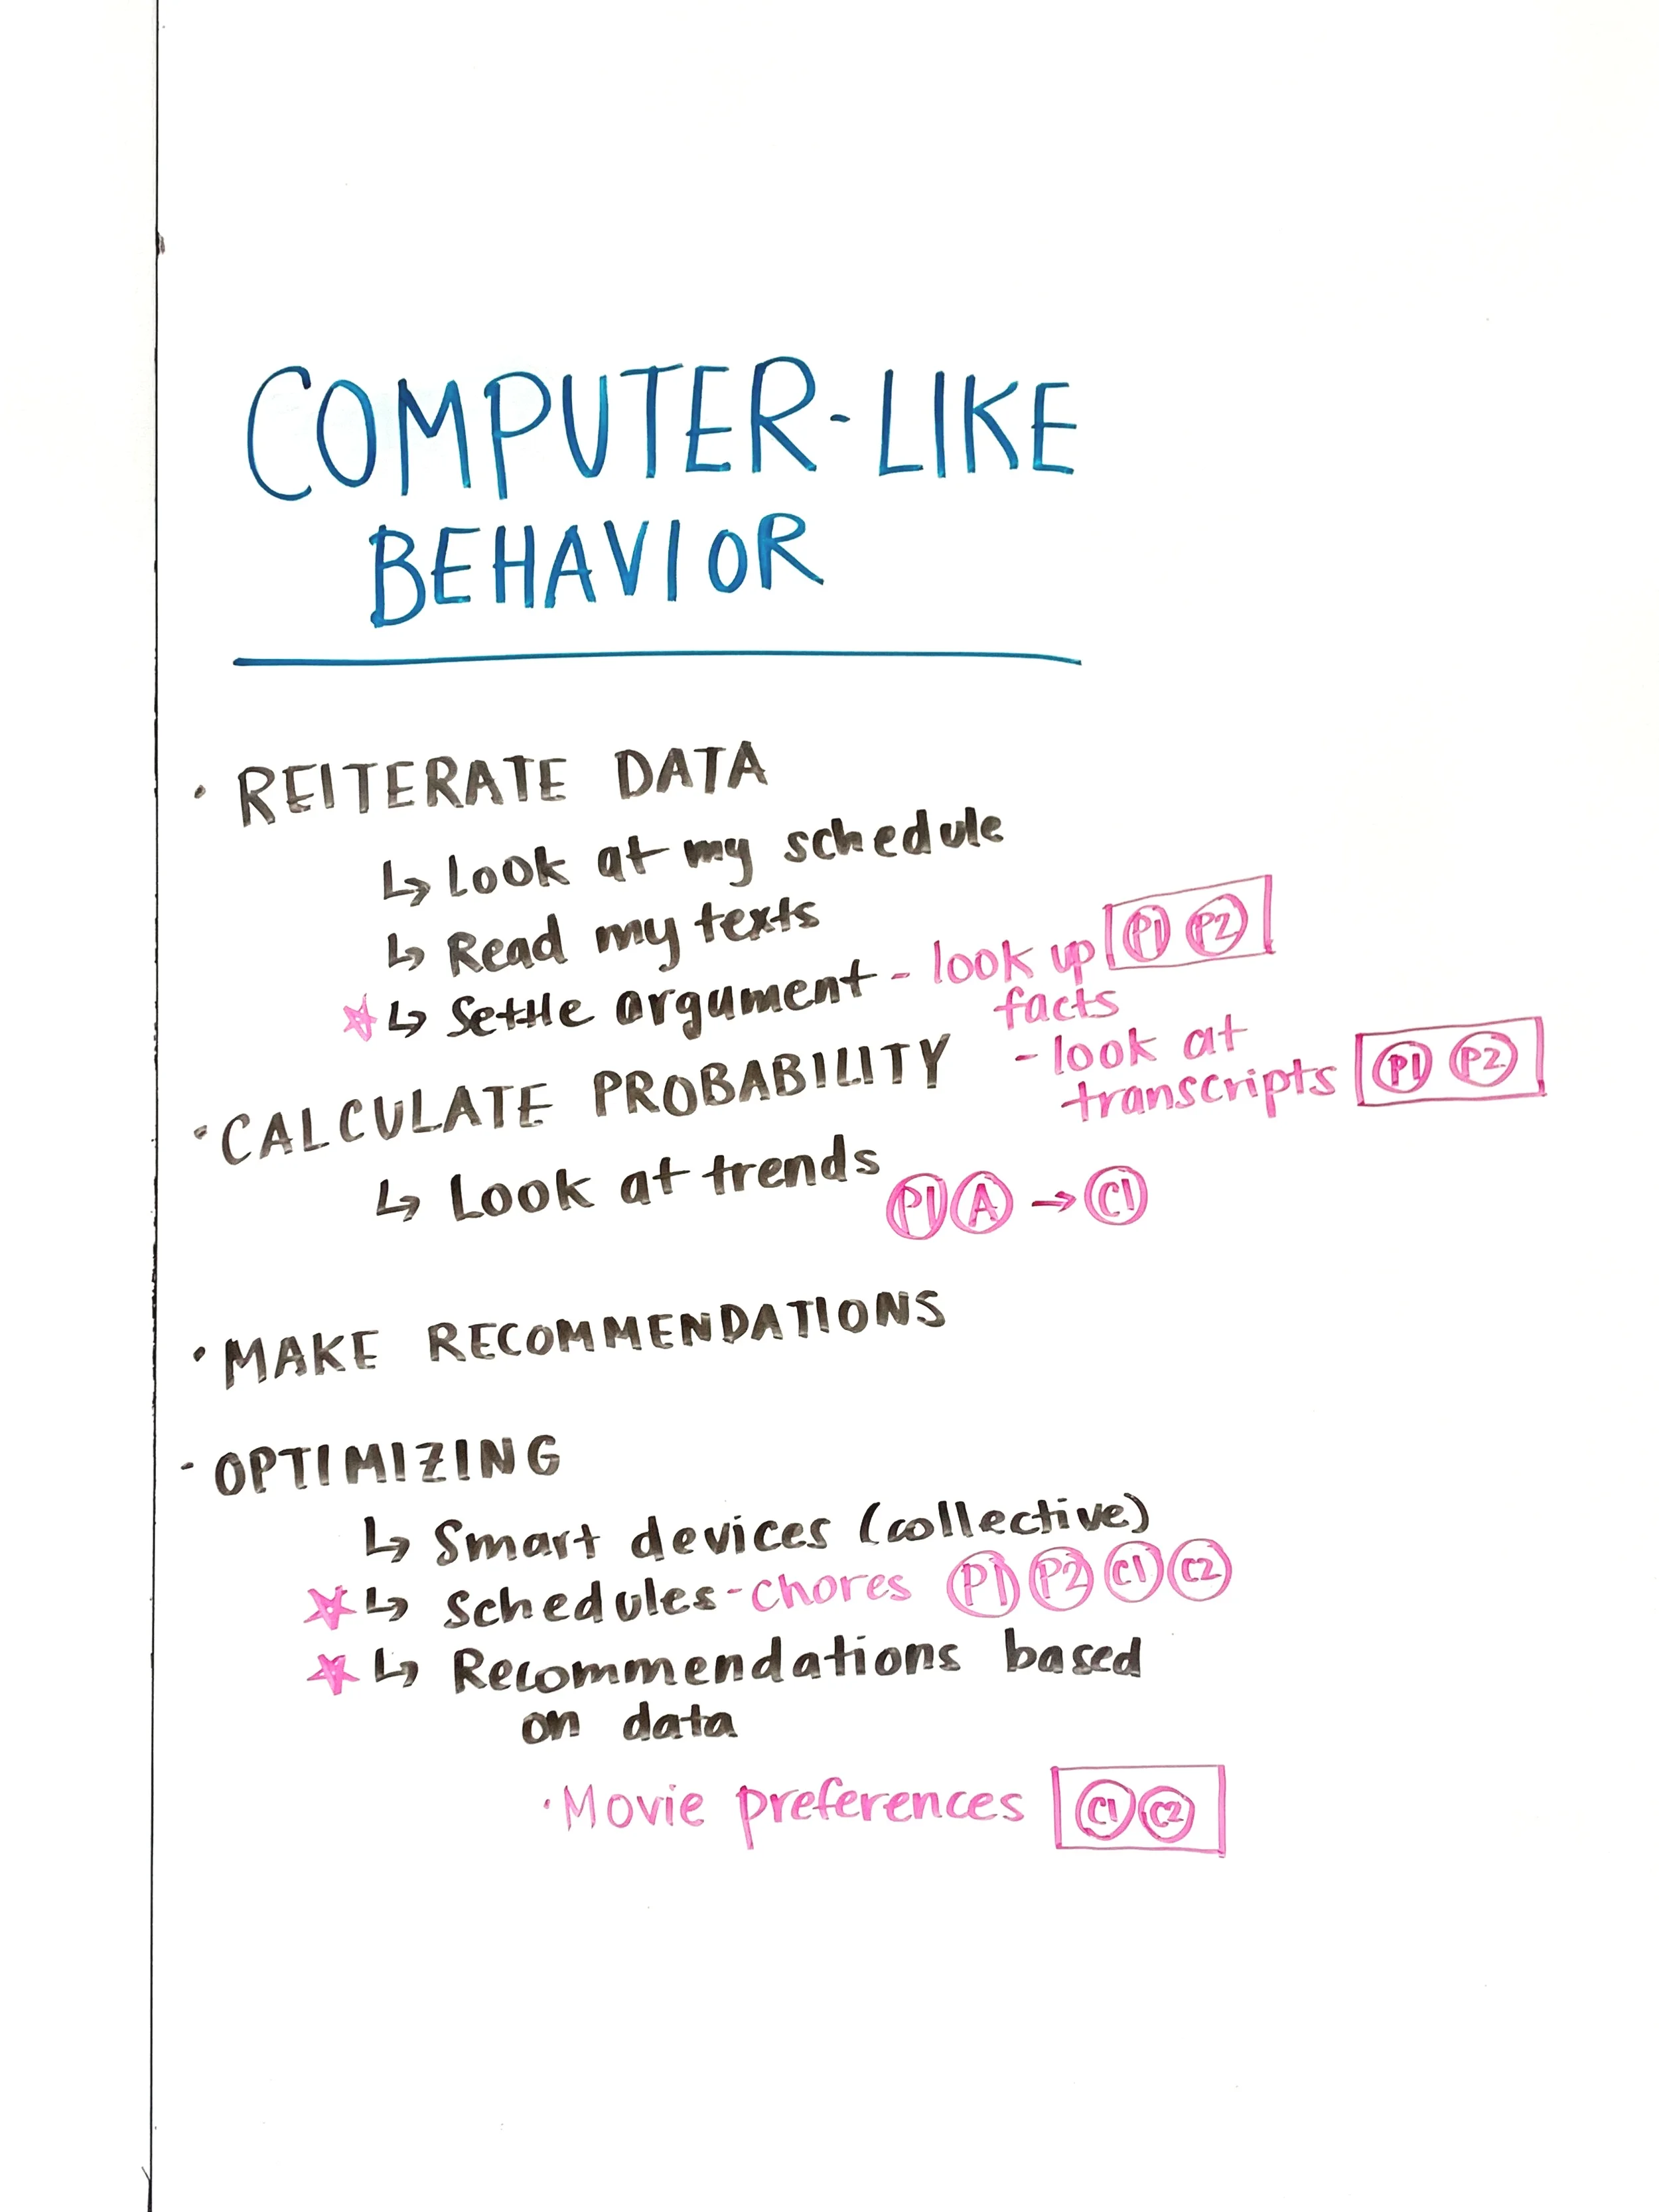 COMPUTER-LIKE
BEHAVIOR
• REITERATE DATA
↳ Look at my schedule
↳ Read my texts
☆ ↳ Settle argument - look up P1 P2
facts
- look at
transcripts P1 P2
• CALCULATE PROBABILITY
↳ Look at trends P1 A → C1
• MAKE RECOMMENDATIONS
- OPTIMIZING
↳ Smart devices (collective)
☆ ↳ Schedules - chores P1 P2 C1 C2
☆ ↳ Recommendations based
on data
• Movie preferences C1 C2